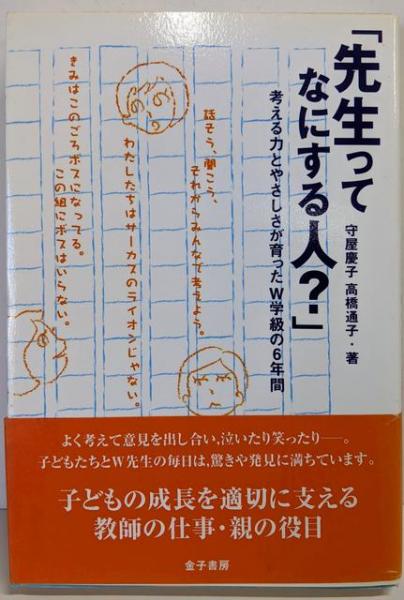 「先生って
なにする人?」
考える力とやさしさが育ったW学級の6年間
守屋慶子 高橋通子・著
話そう、聞こう、
それからみんなで考えよう。
わたしたちはサーカスのライオンじゃない。
きみはこのごろボスになってる。
この組にボスはいらない。
よく考えて意見を出し合い、泣いたり笑ったり──。
子どもたちとW先生の毎日は、驚きや発見に満ちています。
子どもの成長を適切に支える
教師の仕事・親の役目
金子書房